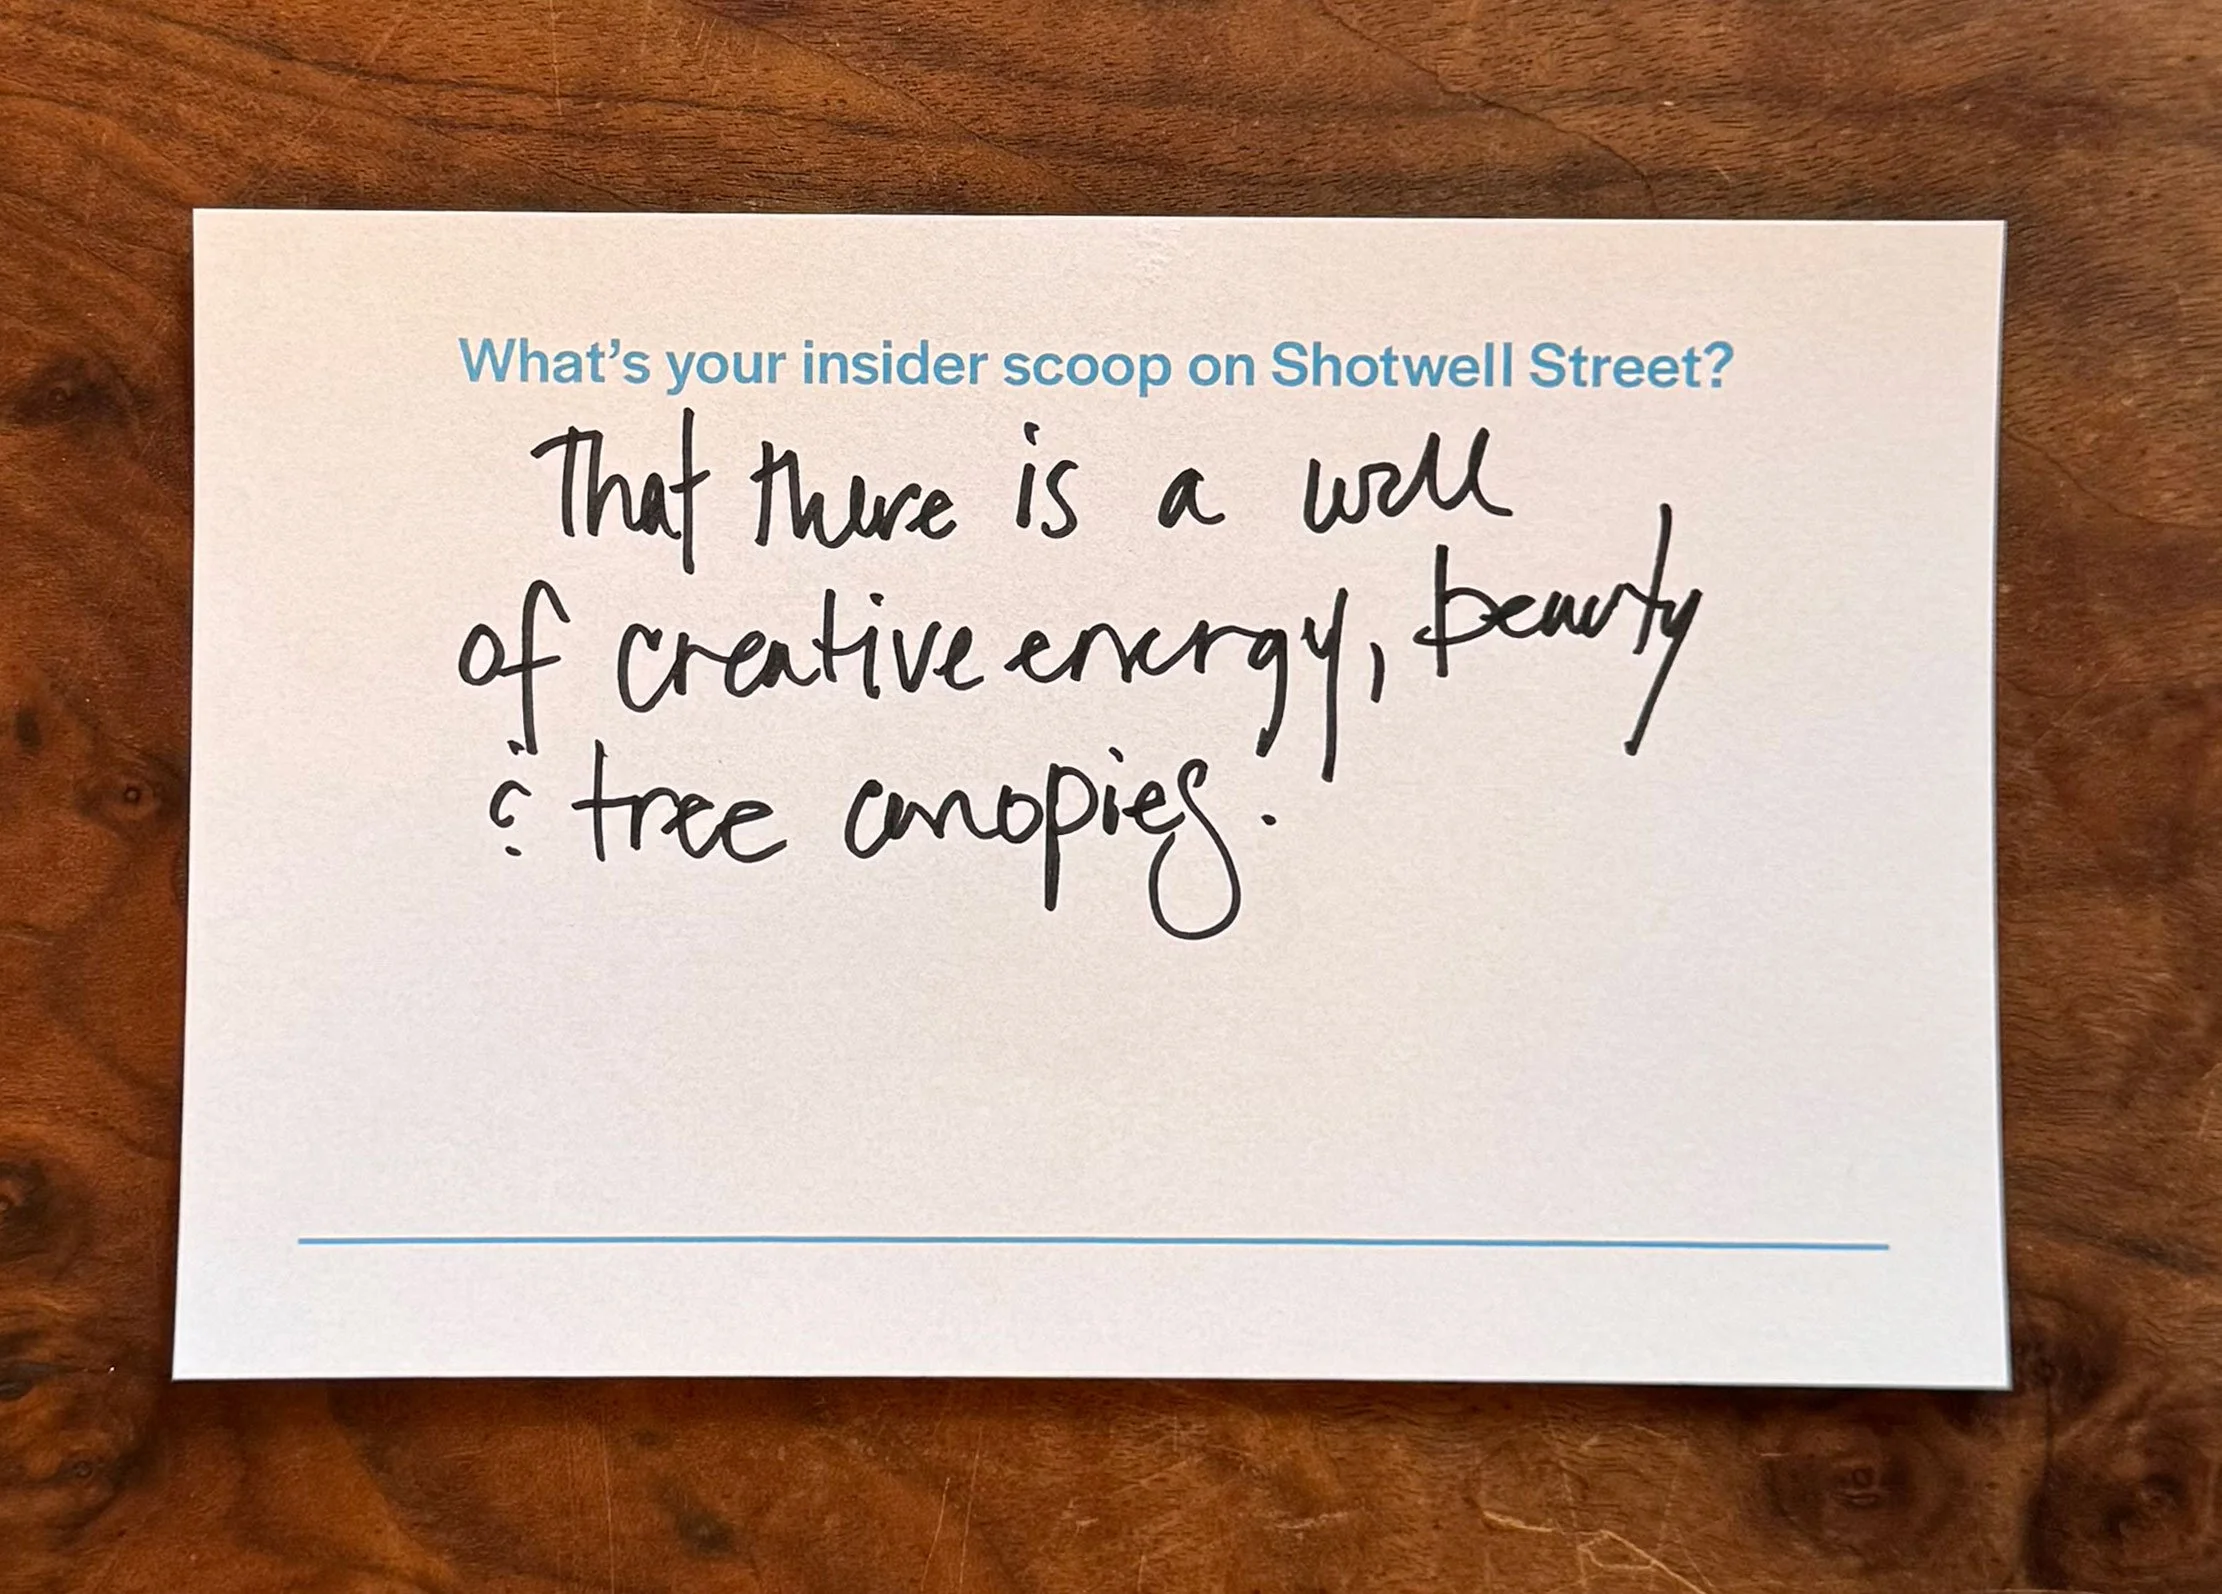 What's your insider scoop on Shotwell Street?
That there is a well
of creative energy, beauty
& tree canopies.